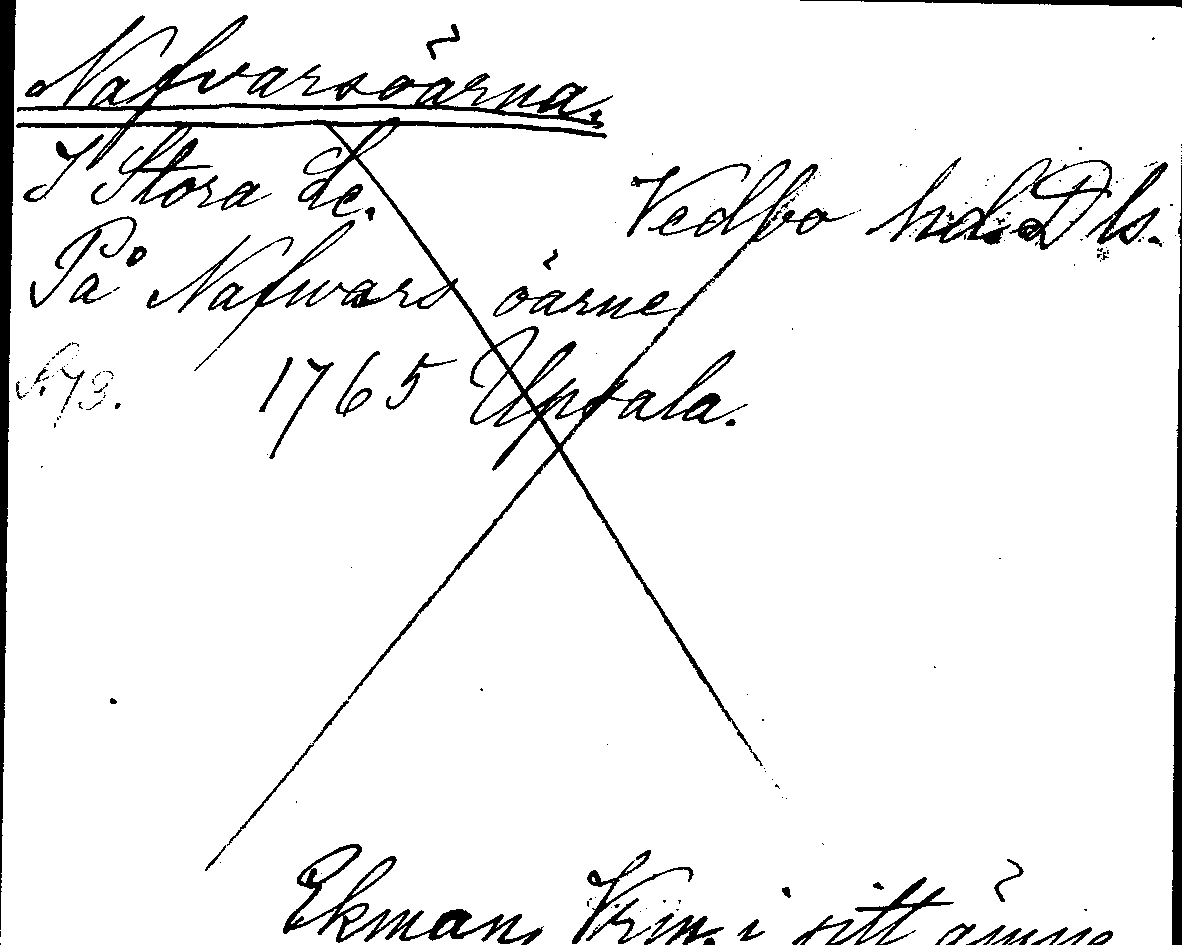 Nafvarsöärna.
I Stora Le.
Vedbo hd. Dls.
På Nafwars öärne
S. 73. 1765 Upsala.
Ekman, Vrm. i sitt ämne